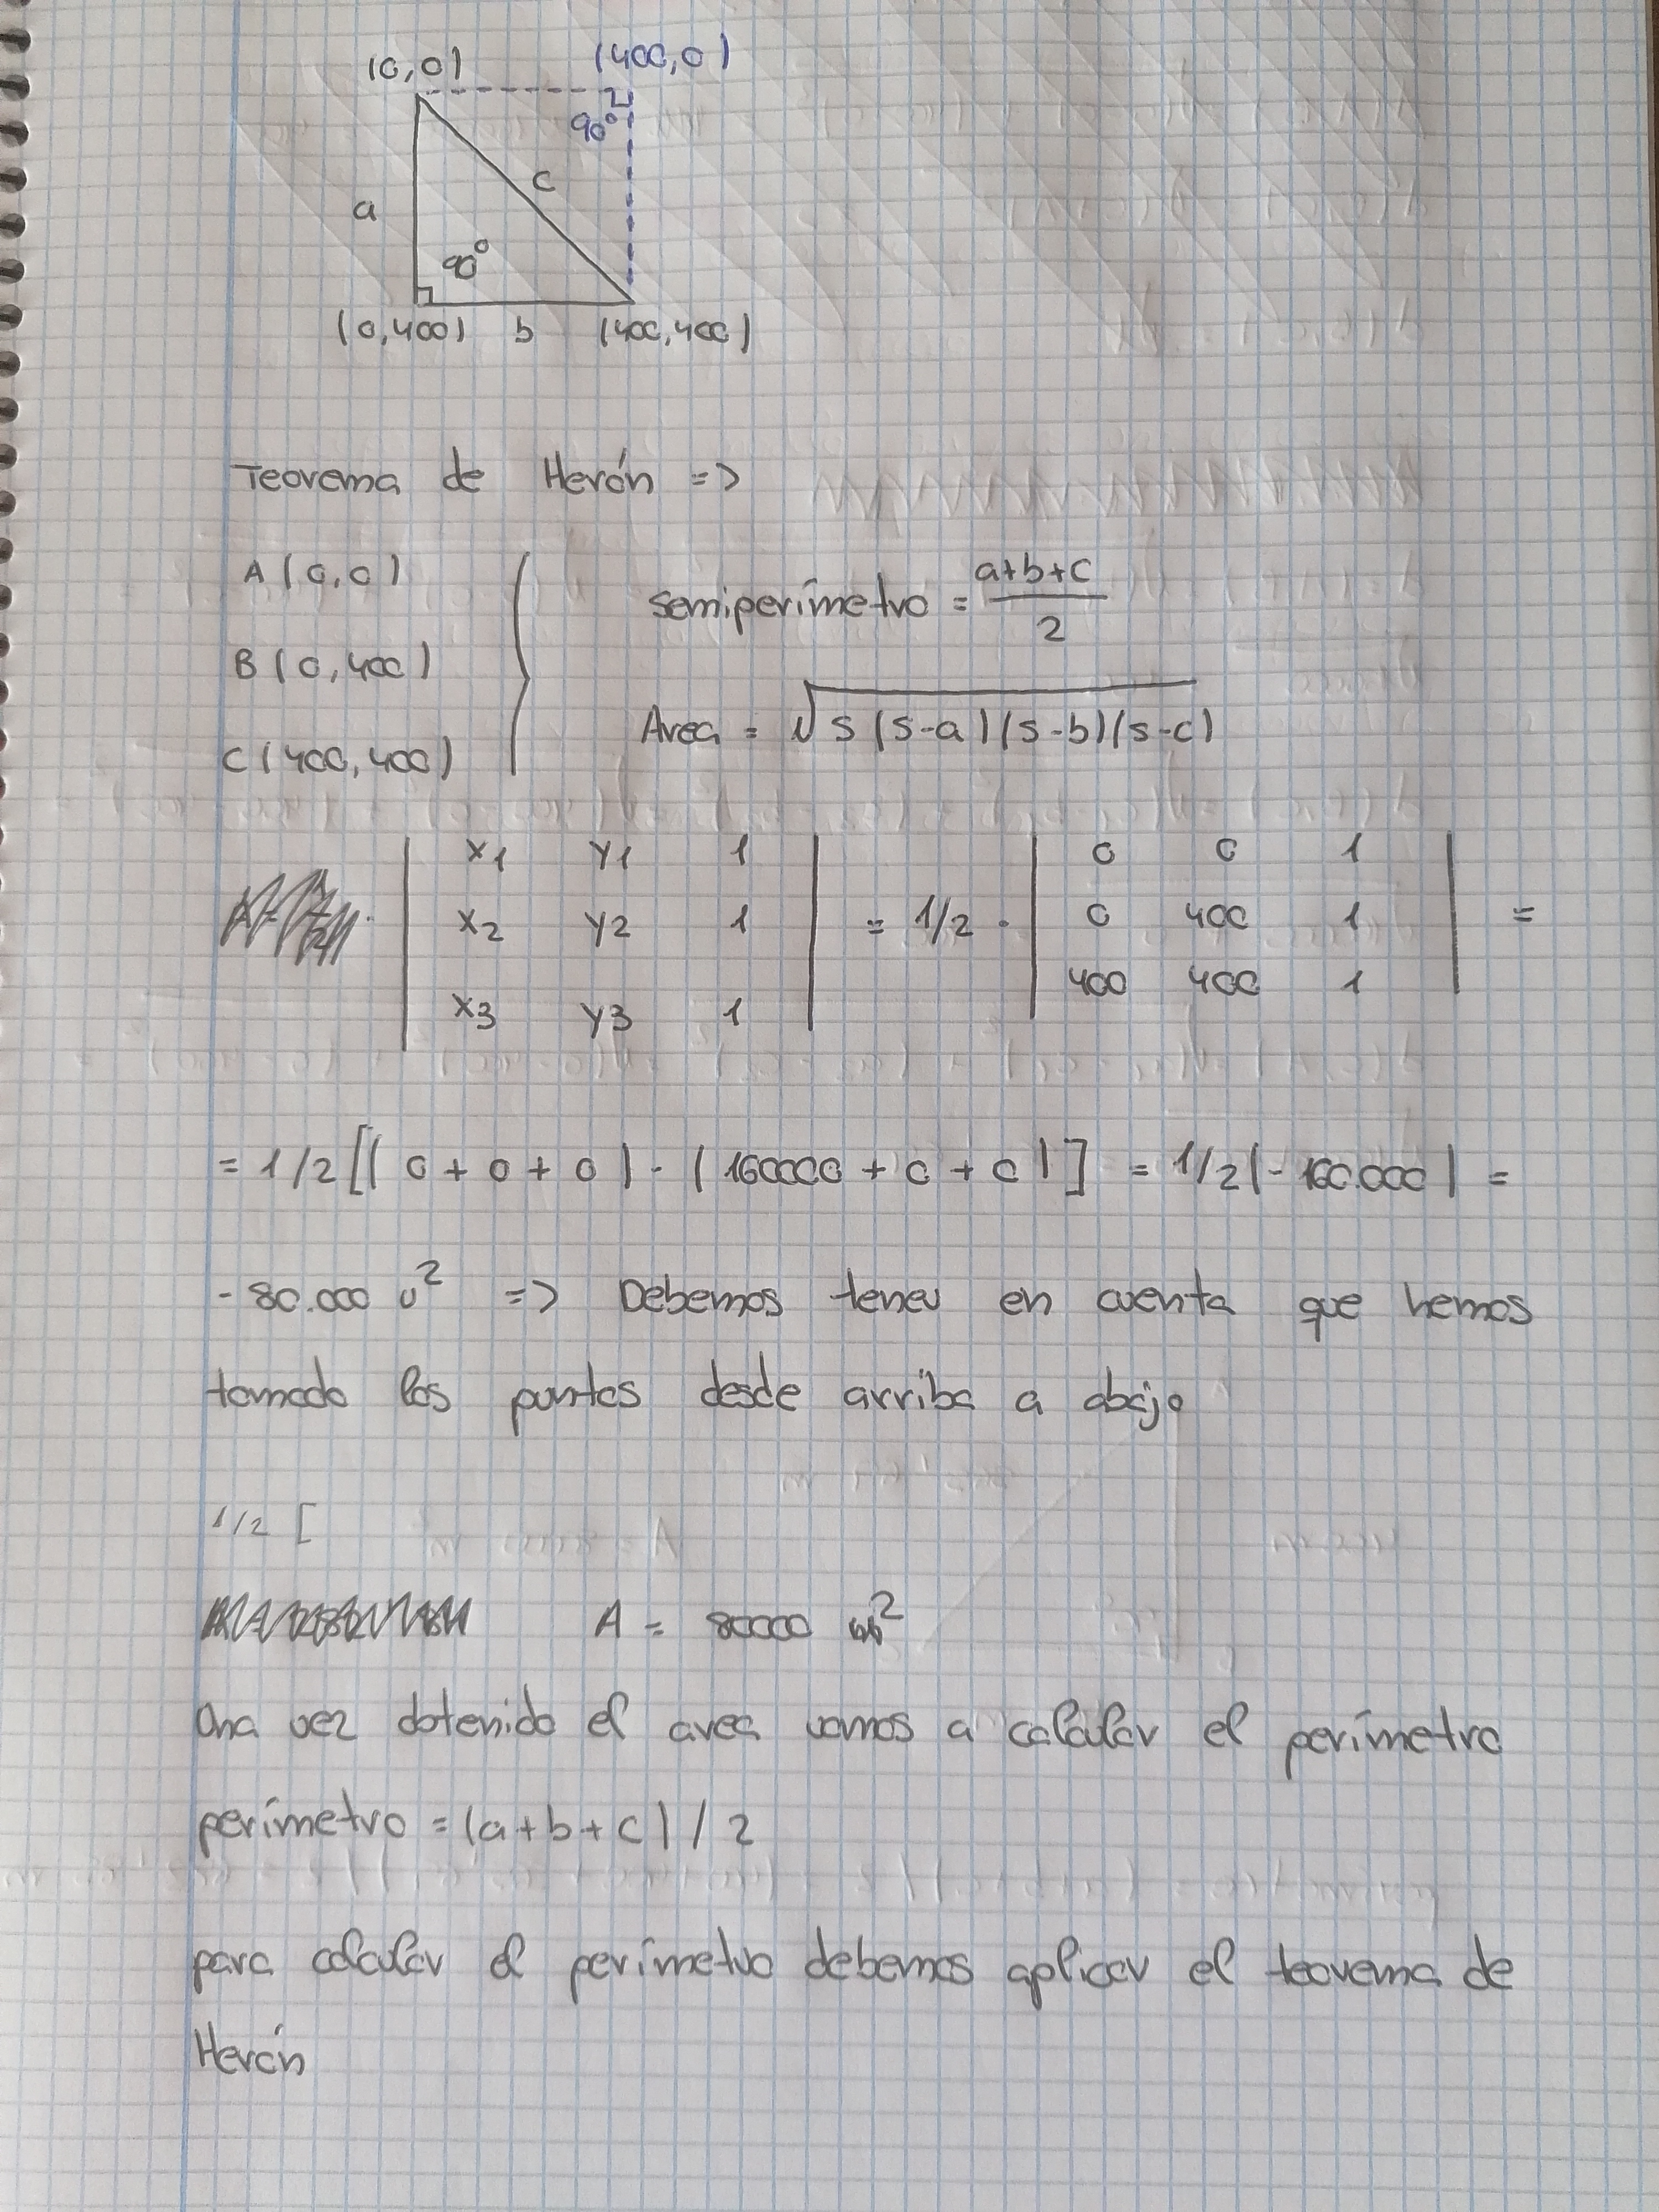 (0,0) (400,0)
90°
c
a
90°
(0,400) b (400,400)
Teorema de Herón =>
A (0,0)
semiperímetro = a+b+c / 2
B (0,400)
Area = √s (s-a)(s-b)(s-c)
C (400,400)
x1 y1 1 0 0 1
x2 y2 1 = 1/2 · 0 400 1 =
x3 y3 1 400 400 1
= 1/2 [( 0 + 0 + 0 ) - ( 160000 + 0 + 0 )] = 1/2 (- 160.000 ) =
- 80.000 u² => Debemos tener en cuenta que hemos
tomado los puntos desde arriba a abajo
1/2 [
A = 80000
Una vez obtenido el area vamos a calcular el perímetro
perímetro = (a+b+c) / 2
para calcular el perímetro debemos aplicar el teorema de
Herón